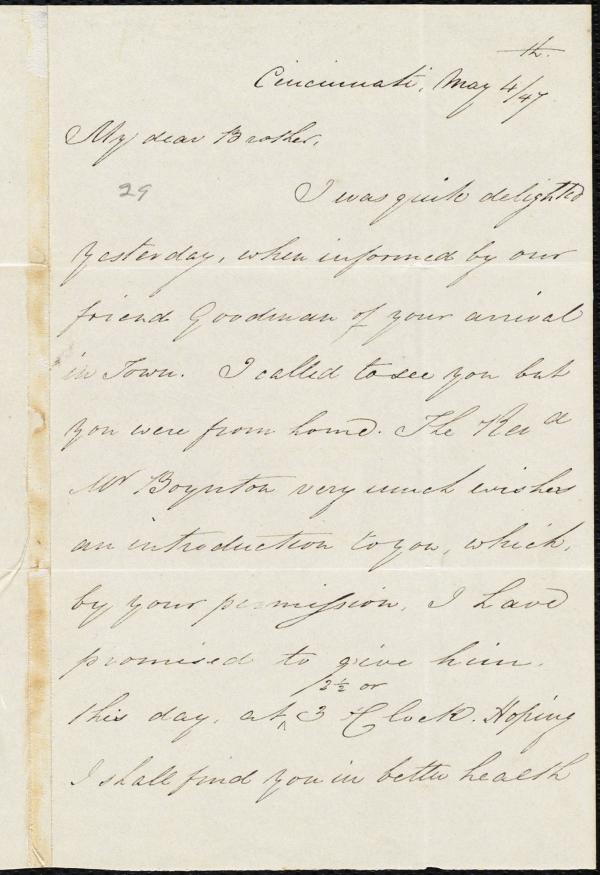 th.
Cincinnati, May 4/47
My dear Brother,
29
I was quite delighted
yesterday, when informed by our
friend Goodman of your arrival
in Town. I called to see you but
you were from home. The Revd
Mr Boynton very much wishes
an introduction to you, which,
by your permission, I have
promised to give him.
2½ or
this day, at ^ 3 O'Clock. Hoping
I shall find you in better health